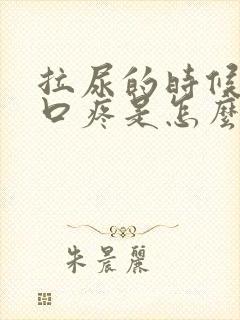 拉尿的時候
口疼是怎麼
朱晨麗